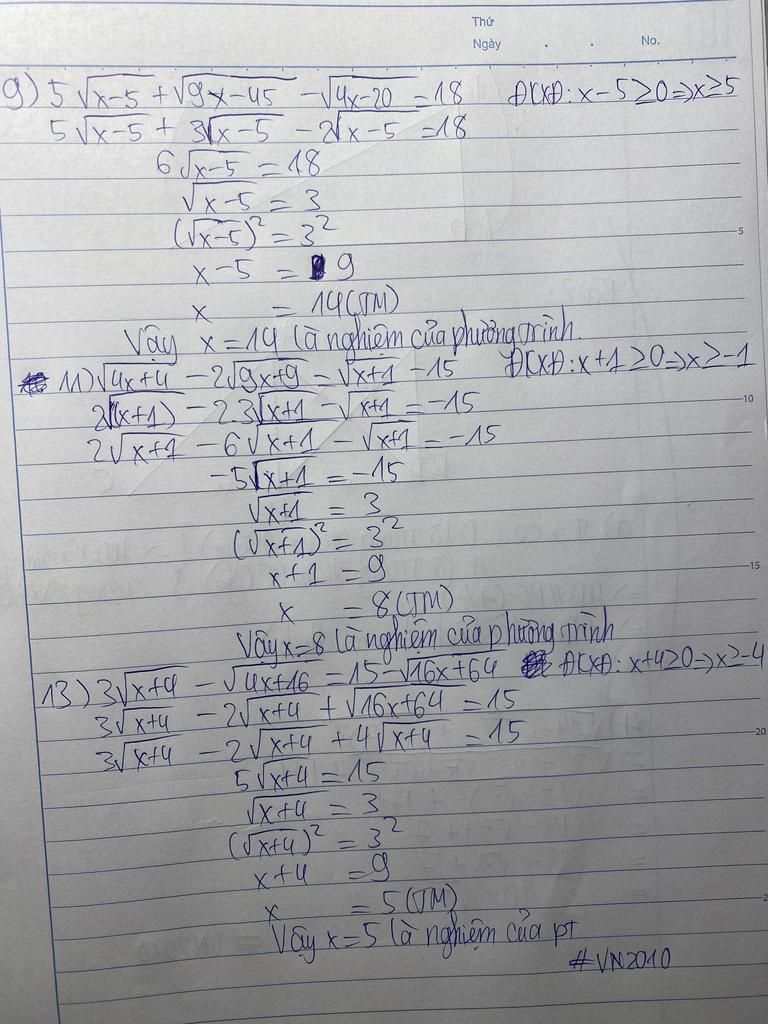 Thứ
Ngày . . No.
9) 5√(x-5) + √(9x-45) - √(4x-20) = 18 ĐKXĐ: x-5≥0 => x≥5
5√(x-5) + 3√(x-5) - 2√(x-5) = 18
6√(x-5) = 18
√(x-5) = 3
(√(x-5))² = 3²
5
x-5 = 9
x = 14(TM)
Vậy x=14 là nghiệm của phường trình.
11) √(4x+4) - 2√(9x+9) = √(x+1) - 15 ĐKXĐ: x+1≥0 => x≥-1
2√(x+1) - 2.3√(x+1) - √(x+1) = -15
10
2√(x+1) - 6√(x+1) - √(x+1) = -15
-5√(x+1) = -15
√(x+1) = 3
(√(x+1))² = 3²
x+1 = 9
15
x = 8(TM)
Vậy x=8 là nghiệm của phường trình
13) 3√(x+4) - √(4x+16) = 15 - √(16x+64) ĐKXĐ: x+4≥0 => x≥-4
3√(x+4) - 2√(x+4) + √(16x+64) = 15
20
3√(x+4) - 2√(x+4) + 4√(x+4) = 15
5√(x+4) = 15
√(x+4) = 3
(√(x+4))² = 3²
x+4 = 9
x = 5(TM)
Vậy x=5 là nghiệm của pt
#VN2010